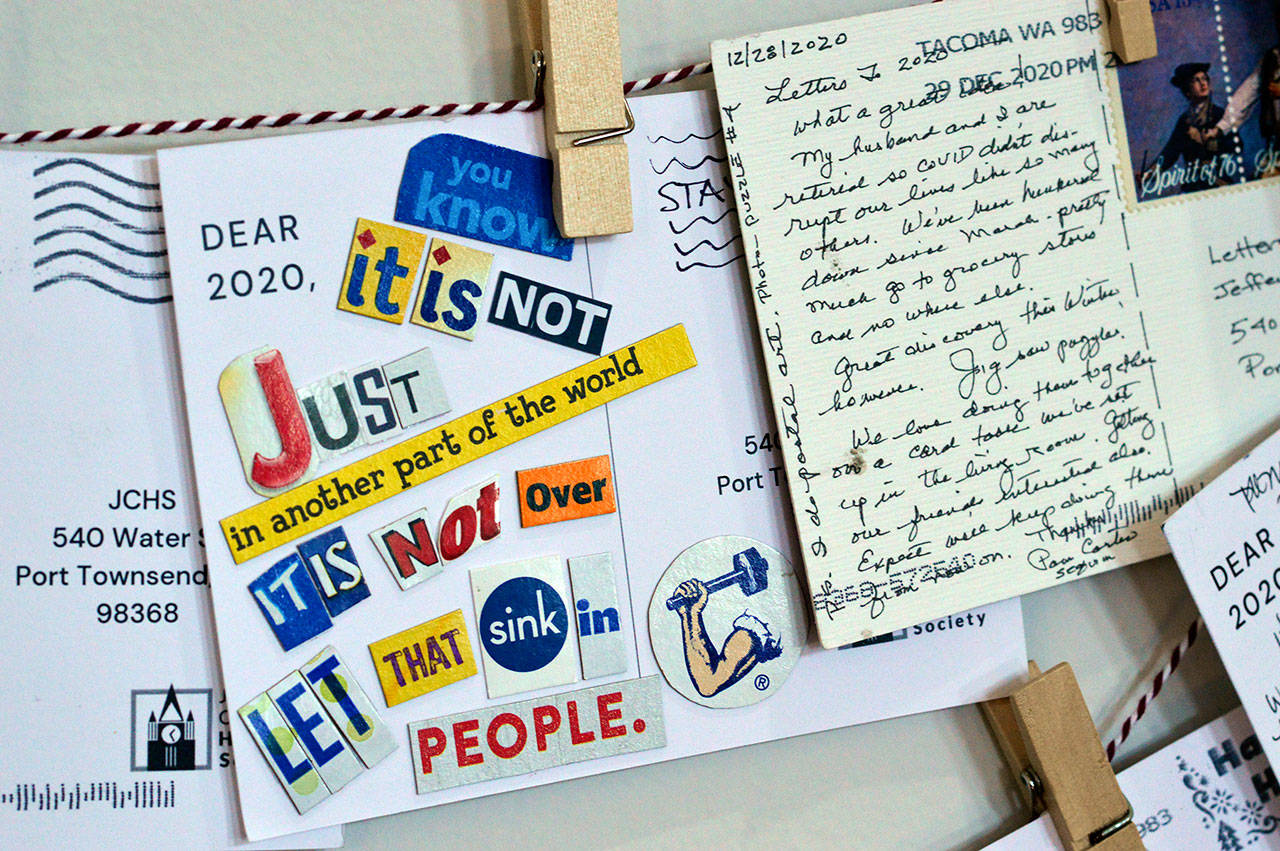 JCHS
540 Water S
Port Townsend
98368
DEAR
2020,
you
know
it is NOT
JUST
in another part of the world
IT IS Not Over
LET THAT sink in
PEOPLE.
®
STA
540
Port T
Society
12/28/2020
TACOMA WA 983
29 DEC 2020 PM 2
Letters To 2020
What a great idea!
My husband and I are
retired so COVID didn't dis-
rupt our lives like so many
others. We've been hunkered
down since March - pretty
much go to grocery stores
and no where else.
Great discovery this winter,
however. Jig saw puzzles.
We love doing them together
on a card table we've set
up in the living room. Getting
our friends interested also.
Expect we'll keep doing them
from now on. Thanks!
Sequim
I do postal art. Photo - puzzle #4
USA 13
Spirit of 76
Letter
Jeffe
540
Por
DEAR
2020
983
Ha
H